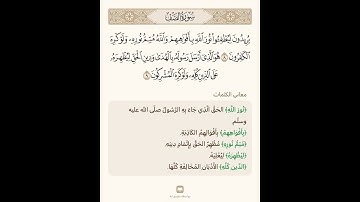 سُورَةُ الصَّفِّ
يُرِيدُونَ لِيُطْفِـُٔوا۟ نُورَ ٱللَّهِ بِأَفْوَٰهِهِمْ وَٱللَّهُ مُتِمُّ نُورِهِۦ وَلَوْ كَرِهَ
ٱلْكَٰفِرُونَ ٨ هُوَ ٱلَّذِىٓ أَرْسَلَ رَسُولَهُۥ بِٱلْهُدَىٰ وَدِينِ ٱلْحَقِّ لِيُظْهِرَهُۥ
عَلَى ٱلدِّينِ كُلِّهِۦ وَلَوْ كَرِهَ ٱلْمُشْرِكُونَ ٩
معاني الكلمات
﴿نُورَ اللَّهِ﴾ الحَقَّ الَّذِي جَاءَ بِهِ الرَّسُولُ صَلَّى الله عليه
وسلَّم.
﴿بِأَفْوَاهِهِمْ﴾ بِأَقْوَالِهِمُ الكَاذِبَةِ.
﴿مُتِمُّ نُورِهِ﴾ مُظْهِرُ الحَقِّ بِإِتْمَامِ دِينِهِ.
﴿لِيُظْهِرَهُ﴾ لِيُعْلِيَهُ.
﴿الدِّينِ كُلِّهِ﴾ الأَدْيَانِ المُخَالِفَةِ كُلِّهَا.